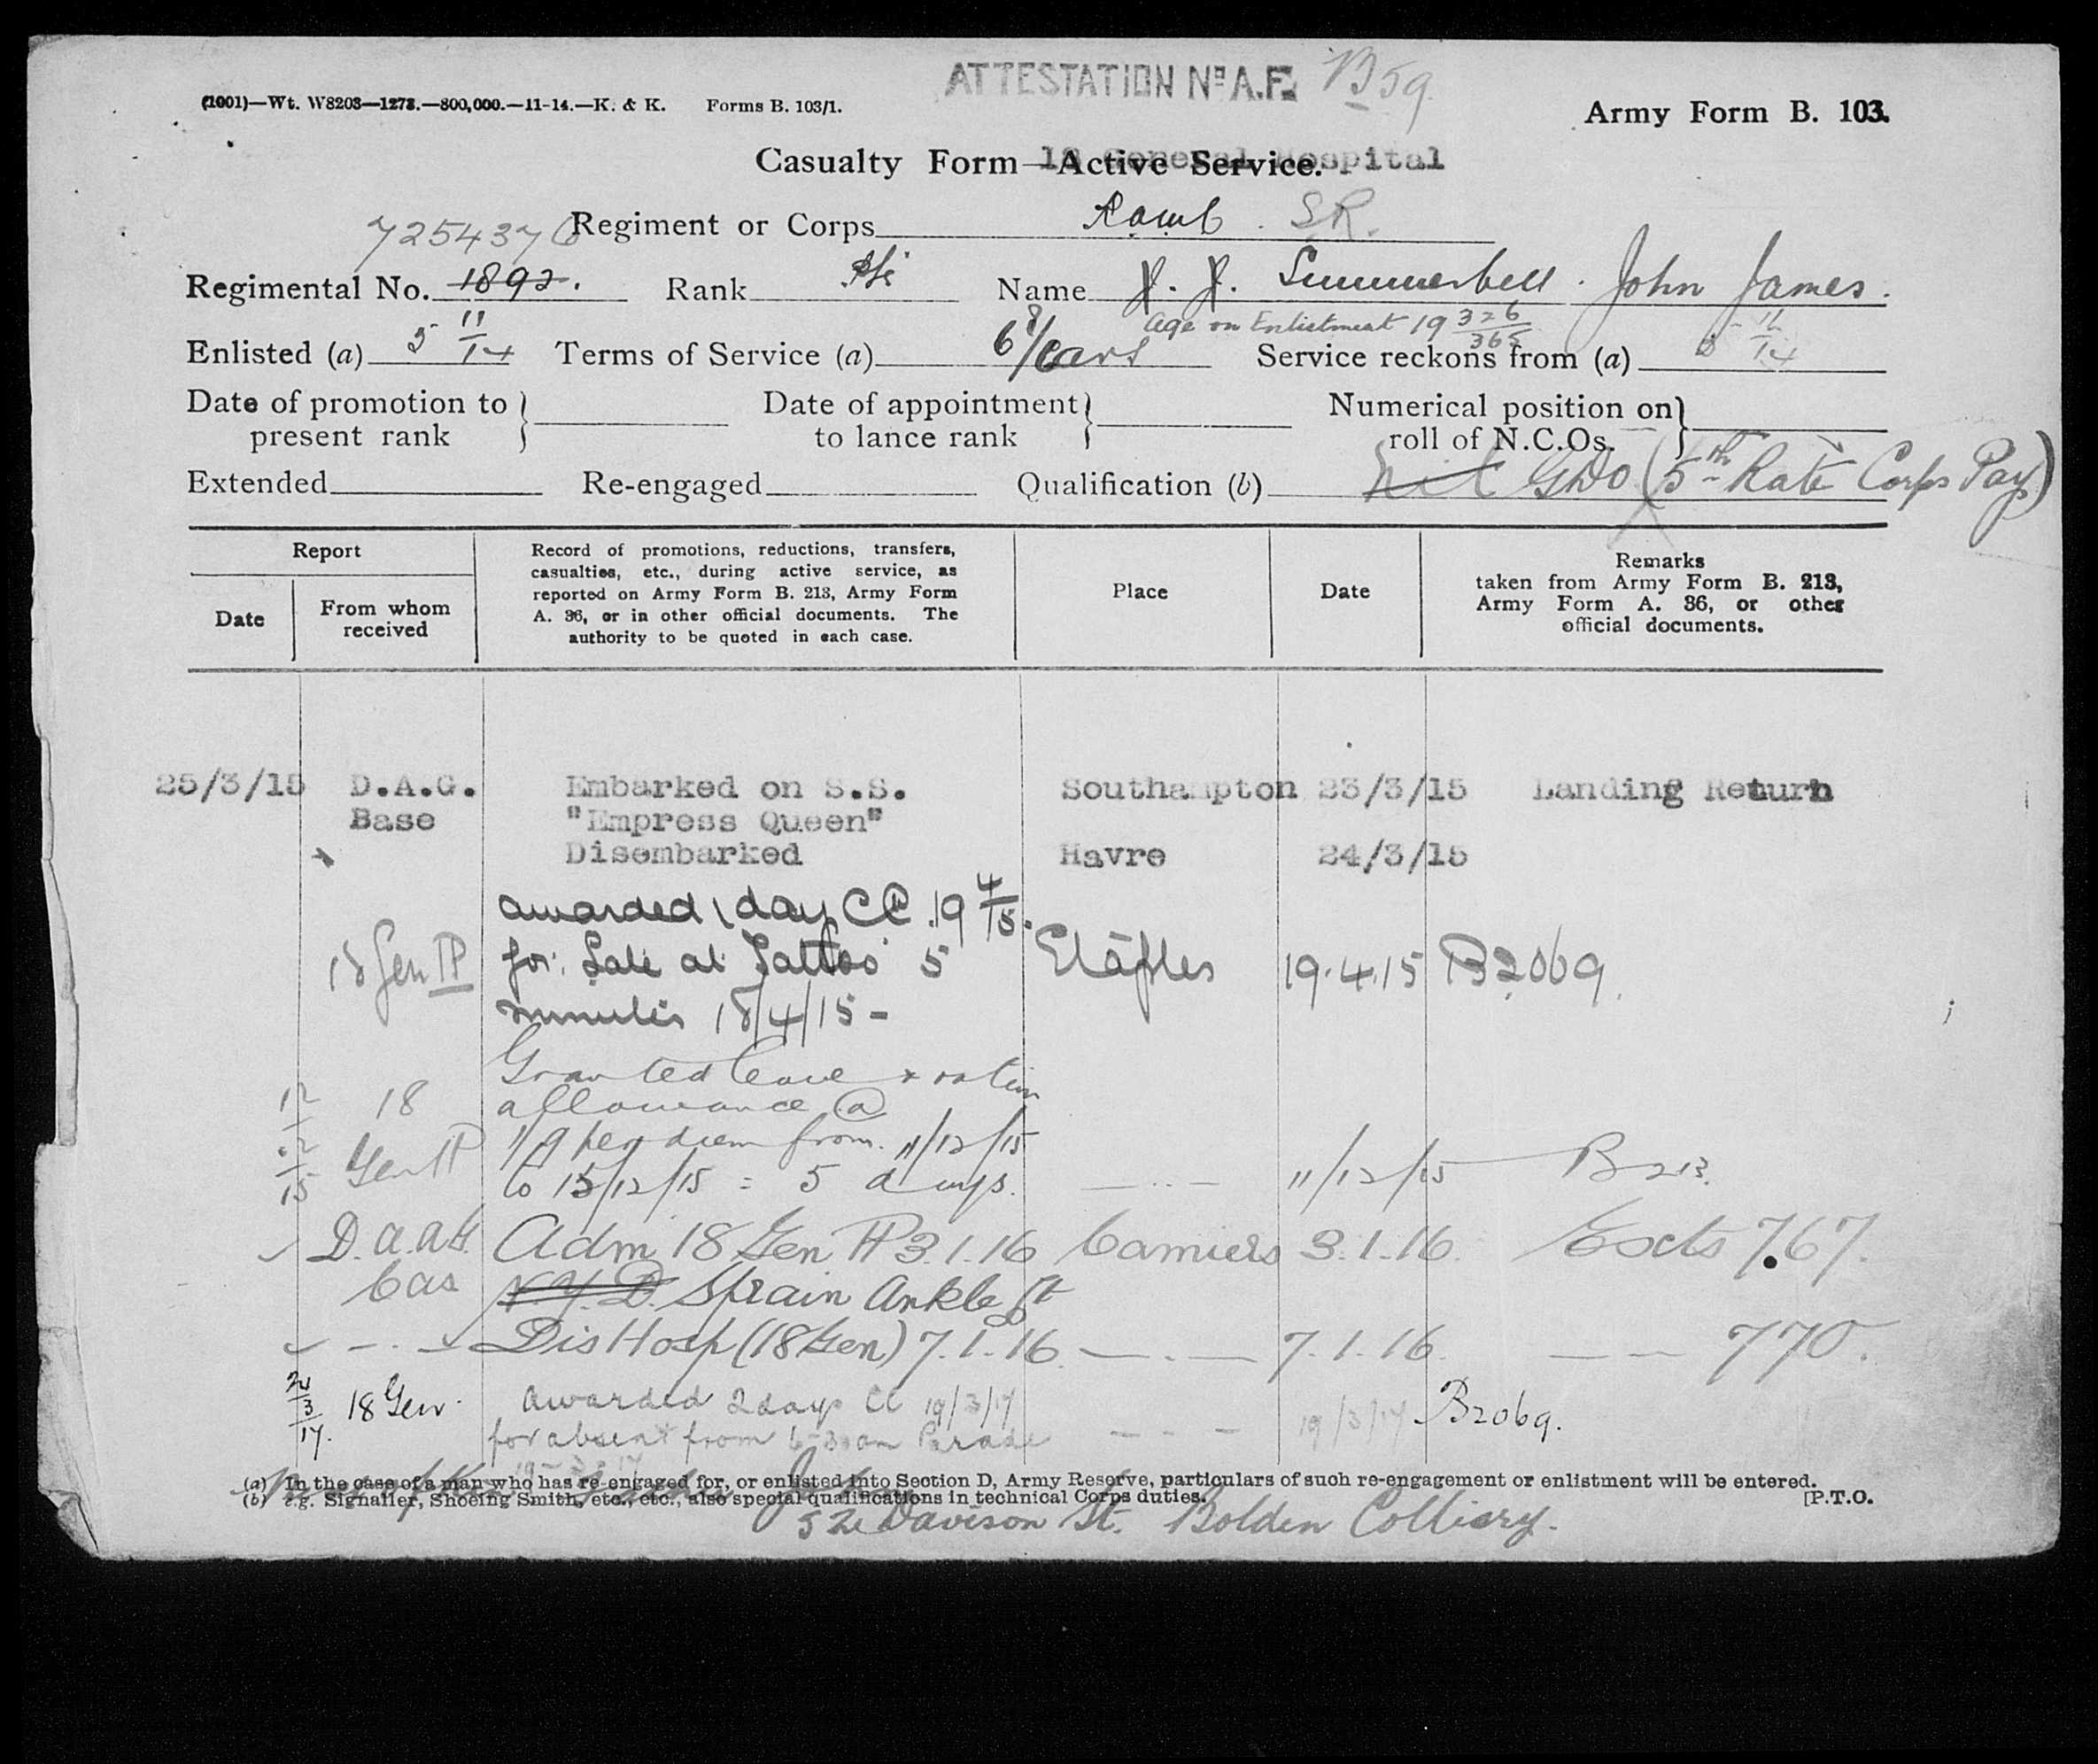 ATTESTATION Nº A.F. B 59
(1001)—Wt. W8203—1273.—800,000.—11-14.—K. & K. Forms B. 103/1.
Army Form B. 103.
Casualty Form—Active Service.
18 General Hospital
7254376
Regiment or Corps RAMC. S.R.
Regimental No. 1892. Rank Pte Name J. J. Summerbell. John James.
Age on Enlistment 19 326/365
Enlisted (a) 5 11/14 Terms of Service (a) 6 Years Service reckons from (a) 5 11/14
Date of promotion to present rank } Date of appointment to lance rank } Numerical position on roll of N.C.Os. }
Extended Re-engaged Qualification (b) Nil GDO (5th Rate Corps Pay)
Report
Date
From whom received
Record of promotions, reductions, transfers,
casualties, etc., during active service, as
reported on Army Form B. 213, Army Form
A. 36, or in other official documents. The
authority to be quoted in each case.
Place
Date
Remarks
taken from Army Form B. 213,
Army Form A. 36, or other
official documents.
25/3/15 D.A.G. Embarked on S.S. Southampton 23/3/15 Landing Return
Base "Empress Queen"
Disembarked Havre 24/3/15
awarded 1 day CC 19 4/15.
18 Gen H for: Late at Tattoo 5 Etaples 19.4.15 B2069.
minutes 18/4/15 -
Granted leave & ration
12 18 allowance @
12 Gen H 1/9 per diem from 11/12/15
15 to 15/12/15 = 5 days. —"— 11/12/15 B213.
D.A.A.G. Adm 18 Gen H 3.1.16 Camiers 3.1.16. Exts 767.
Cas N.Y.D. Sprain Ankle Rt
— . — Dis Hosp (18 Gen) 7.1.16 — . — 7.1.16. — — 770.
21/3/17. 18 Gen. Awarded 2 days CC 19/3/17
for absent from 6-30am Parade — - — 19/3/17 B2069.
19-3-17
(a) In the case of a man who has re-engaged for, or enlisted into Section D, Army Reserve, particulars of such re-engagement or enlistment will be entered.
(b) e.g. Signaller, Shoeing Smith, etc., etc., also special qualifications in technical Corps duties. [P.T.O.
52 Davison St. Bolden Colliery.